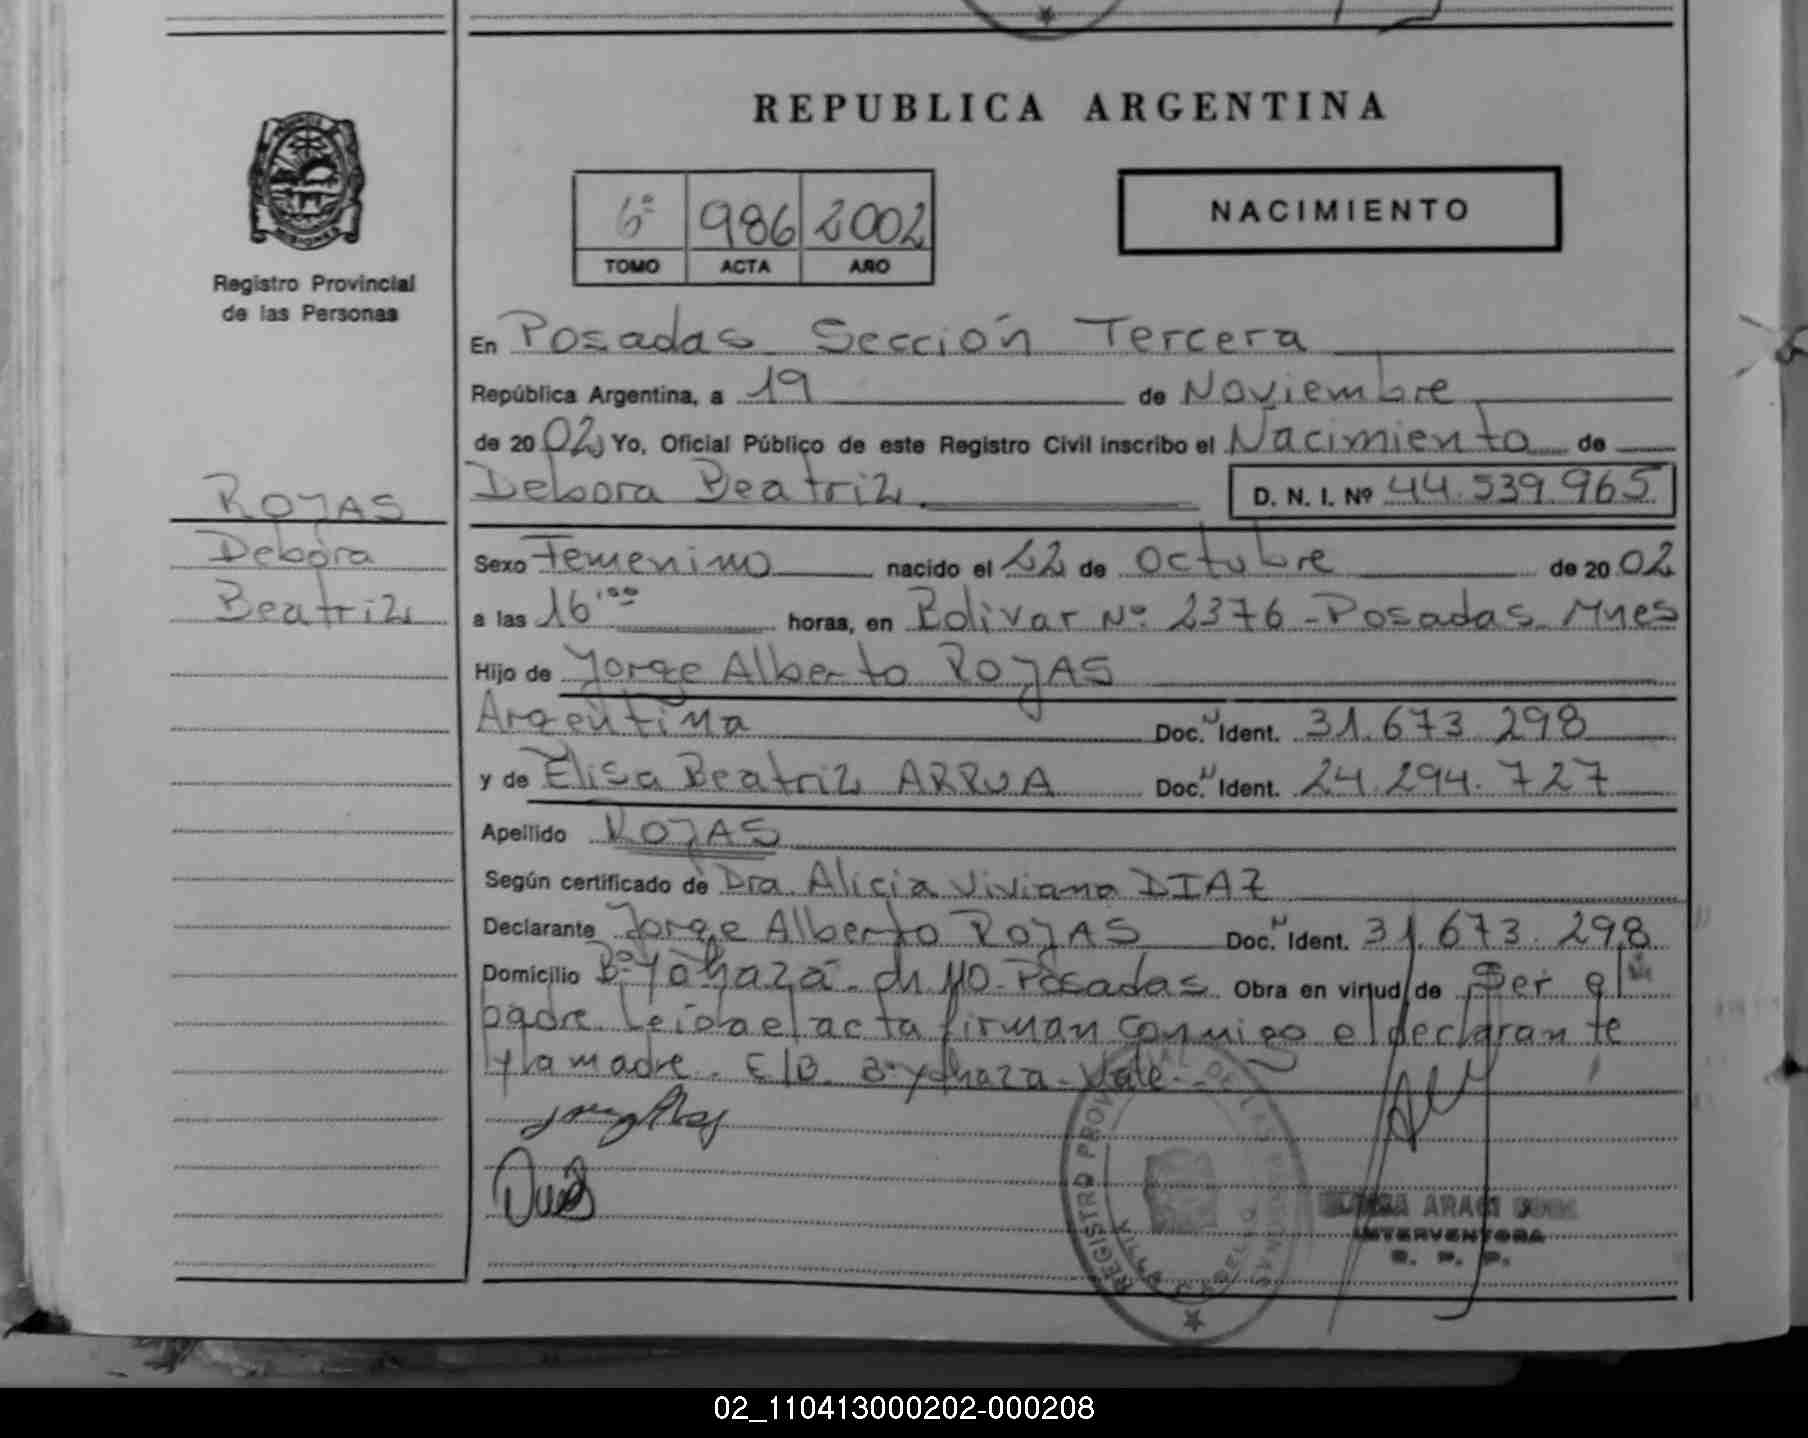 REPUBLICA ARGENTINA
6º 986 2002
TOMO ACTA AÑO
NACIMIENTO
MISIONES
Registro Provincial
de las Personas
En Posadas Sección Tercera
República Argentina, a 19 de Noviembre
de 2002 Yo, Oficial Público de este Registro Civil inscribo el Nacimiento de
Debora Beatriz D. N. I. Nº 44.539.965
ROJAS
Debora
Beatriz
Sexo Femenino nacido el 22 de Octubre de 2002
a las 16'00 horas, en Bolivar Nº 2376 - Posadas Mnes
Hijo de Jorge Alberto ROJAS
Argentina Doc. Ident. 31.673.298
y de Elisa Beatriz ARRUA Doc. Ident. 24.294.727
Apellido ROJAS
Según certificado de Dra. Alicia Viviana DIAZ
Declarante Jorge Alberto ROJAS Doc. Ident. 31.673.298
Domicilio Bº Yohaza - ch 110 - Posadas Obra en virtud de Ser el
padre. Leida el acta firman conmigo el declarante
y la madre. E/B. Bº Yohaza - Vale -
REGISTRO PROVINCIAL DE LAS PERSONAS
VILLA CABELLO
ARACI
INTERVENTORA
R. P. P.
02_110413000202-000208